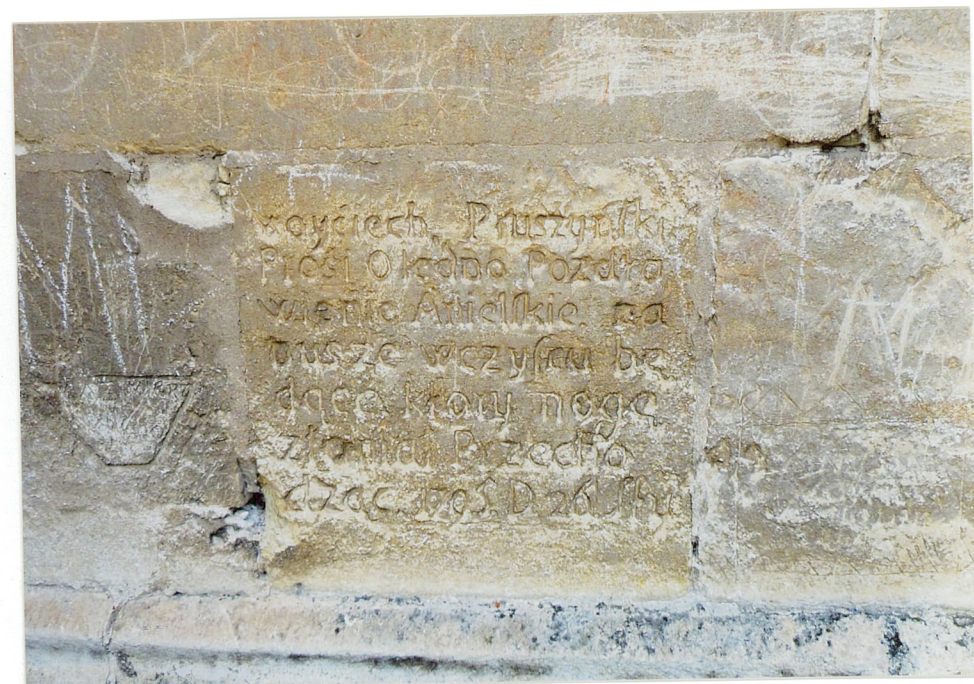 woyciech Pruszynſki
Prośi O Iedno Pozdro
wienie Anielſkie za
Dusze wczyſcu bę
dące ktory mogą
Przecho
dząc D 26